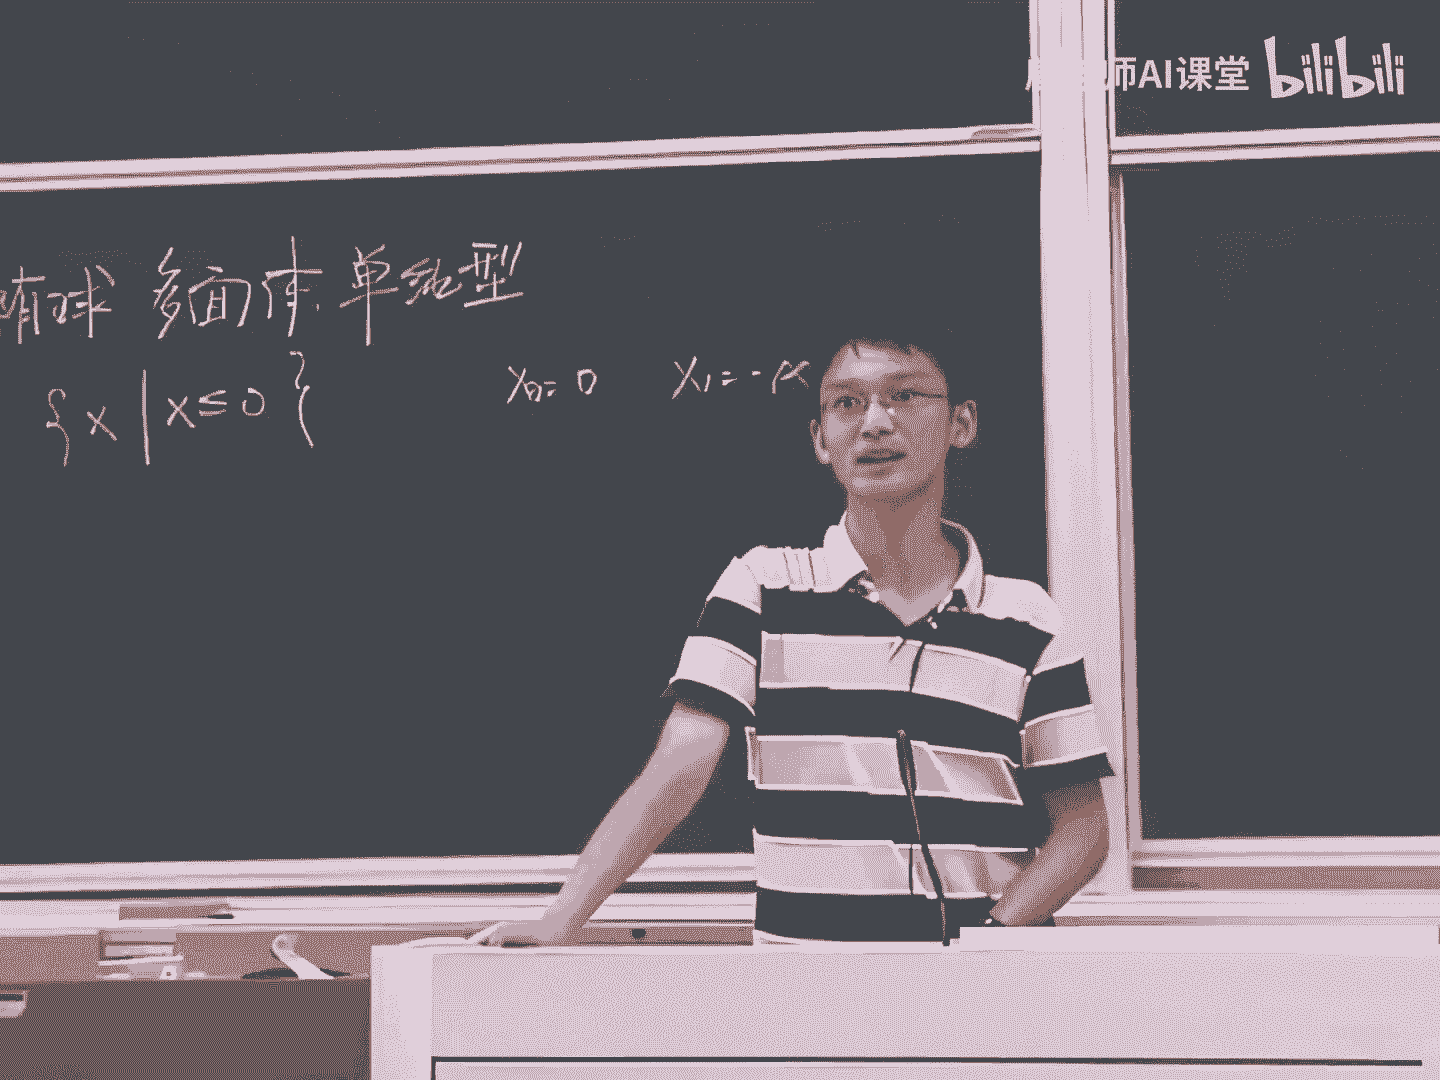 师AI课堂 bilibili
球 多面体 单纯型
{x | x ≤ 0} x₀= 0 x₁= -∝